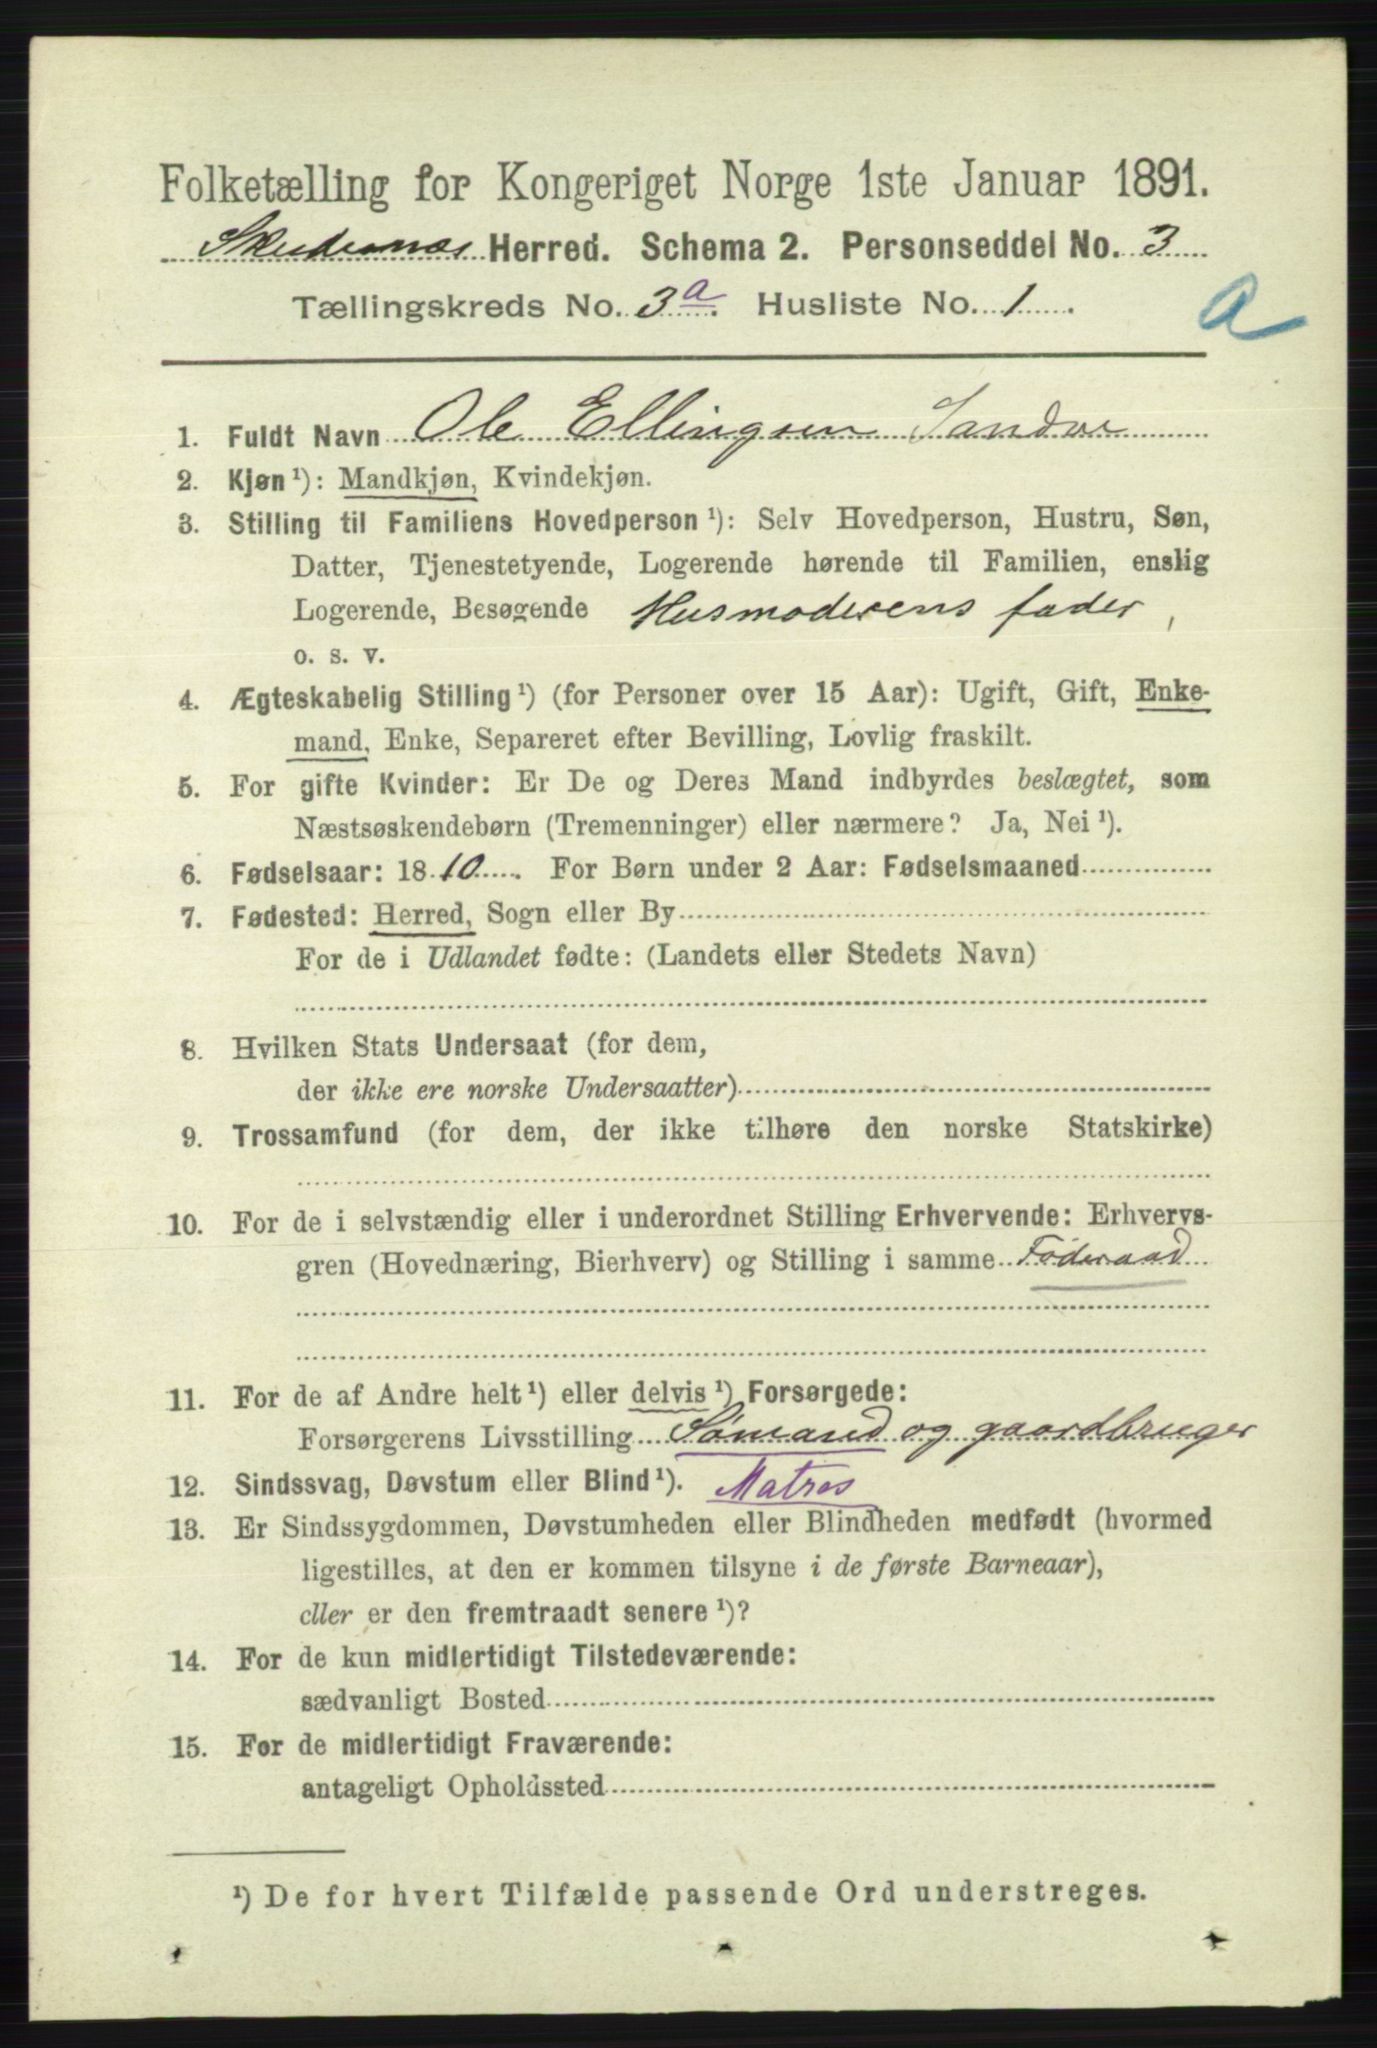 Folketælling for Kongeriget Norge 1ste Januar 1891.
Skudenæs Herred. Schema 2. Personseddel No. 3
Tællingskreds No. 3 a. Husliste No. 1.
a
1. Fuldt Navn Ole Ellingsen Sandve
2. Kjøn ¹): Mandkjøn, Kvindekjøn.
3. Stilling til Familiens Hovedperson ¹): Selv Hovedperson, Hustru, Søn,
Datter, Tjenestetyende, Logerende hørende til Familien, enslig
Logerende, Besøgende Husmoderens fader,
o. s. v.
4. Ægteskabelig Stilling ¹) (for Personer over 15 Aar): Ugift, Gift, Enke-
mand, Enke, Separeret efter Bevilling, Lovlig fraskilt.
5. For gifte Kvinder: Er De og Deres Mand indbyrdes beslægtet, som
Næstsøskendebørn (Tremenninger) eller nærmere? Ja, Nei ¹).
6. Fødselsaar: 1810. For Børn under 2 Aar: Fødselsmaaned
7. Fødested: Herred, Sogn eller By
For de i Udlandet fødte: (Landets eller Stedets Navn)
8. Hvilken Stats Undersaat (for dem,
der ikke ere norske Undersaatter)
9. Trossamfund (for dem, der ikke tilhøre den norske Statskirke)
10. For de i selvstændig eller i underordnet Stilling Erhvervende: Erhvervs-
gren (Hovednæring, Bierhverv) og Stilling i samme Føderaad
11. For de af Andre helt ¹) eller delvis ¹) Forsørgede:
Forsørgerens Livsstilling Sømand og gaardbruger
12. Sindssvag, Døvstum eller Blind ¹). Matros
13. Er Sindssygdommen, Døvstumheden eller Blindheden medfødt (hvormed
ligestilles, at den er kommen tilsyne i de første Barneaar),
eller er den fremtraadt senere ¹)?
14. For de kun midlertidigt Tilstedeværende:
sædvanligt Bosted
15. For de midlertidigt Fraværende:
antageligt Opholdssted
¹) De for hvert Tilfælde passende Ord understreges.